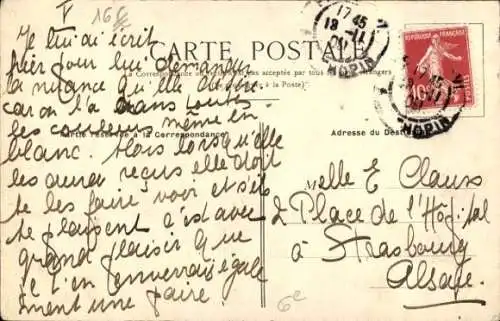 V
16 F
CARTE POSTALE
La Correspondance au recto n'est pas acceptée par tous les pays étrangers
(Se renseigner à la Poste)
Correspondance réservée à la Correspondance
Adresse du Destinataire
Je lui ai écrit
hier pour lui demander
la nuance qu'elle désire
car on l'a dans toutes
les couleurs même en
blanc. Alors lorsqu'elle
les aura reçus elle doit
te les faire voir et s'ils
te plaisent c'est avec
grand plaisir que
je t'en enverrais égale
ment une paire.
Melle E Clauss
2 Place de l'Hôpital
à Strasbourg
Alsace
6e
17 45
18 - 11
REPUBLIQUE FRANÇAISE
10
POSTES